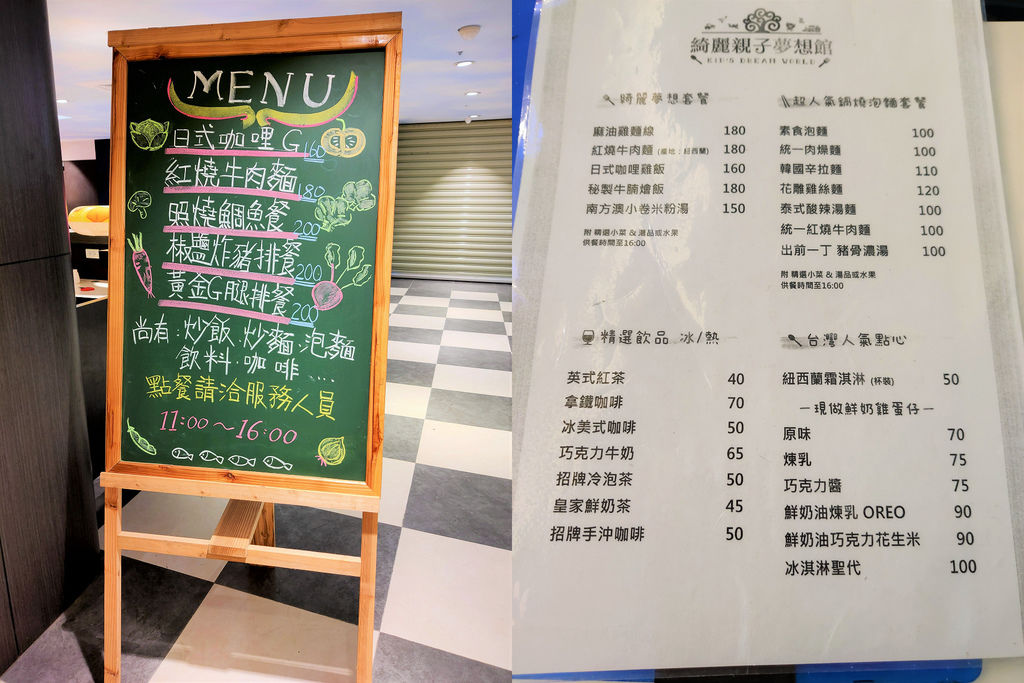 MENU
日式咖哩G 160
紅燒牛肉麵 180
照燒鯛魚餐 200
椒鹽炸豬排餐 200
黃金G腿排餐 200
尚有:炒飯.炒麵.泡麵
飲料.咖啡....
點餐請洽服務人員
11:00~16:00
綺麗親子夢想館
KID'S DREAM WORLD
綺麗夢想套餐
麻油雞麵線 180
紅燒牛肉麵 (產地:紐西蘭) 180
日式咖哩雞飯 160
秘製牛腩燴飯 180
南方澳小卷米粉湯 150
附 精選小菜 & 湯品或水果
供餐時間至16:00
超人氣鍋燒泡麵套餐
素食泡麵 100
統一肉燥麵 100
韓國辛拉麵 110
花雕雞絲麵 120
泰式酸辣湯麵 100
統一紅燒牛肉麵 100
出前一丁 豬骨濃湯 100
附 精選小菜 & 湯品或水果
供餐時間至16:00
精選飲品 冰/熱
英式紅茶 40
拿鐵咖啡 70
冰美式咖啡 50
巧克力牛奶 65
招牌冷泡茶 50
皇家鮮奶茶 45
招牌手沖咖啡 50
台灣人氣點心
紐西蘭霜淇淋 (杯裝) 50
—現做鮮奶雞蛋仔—
原味 70
煉乳 75
巧克力醬 75
鮮奶油煉乳 OREO 90
鮮奶油巧克力花生米 90
冰淇淋聖代 100